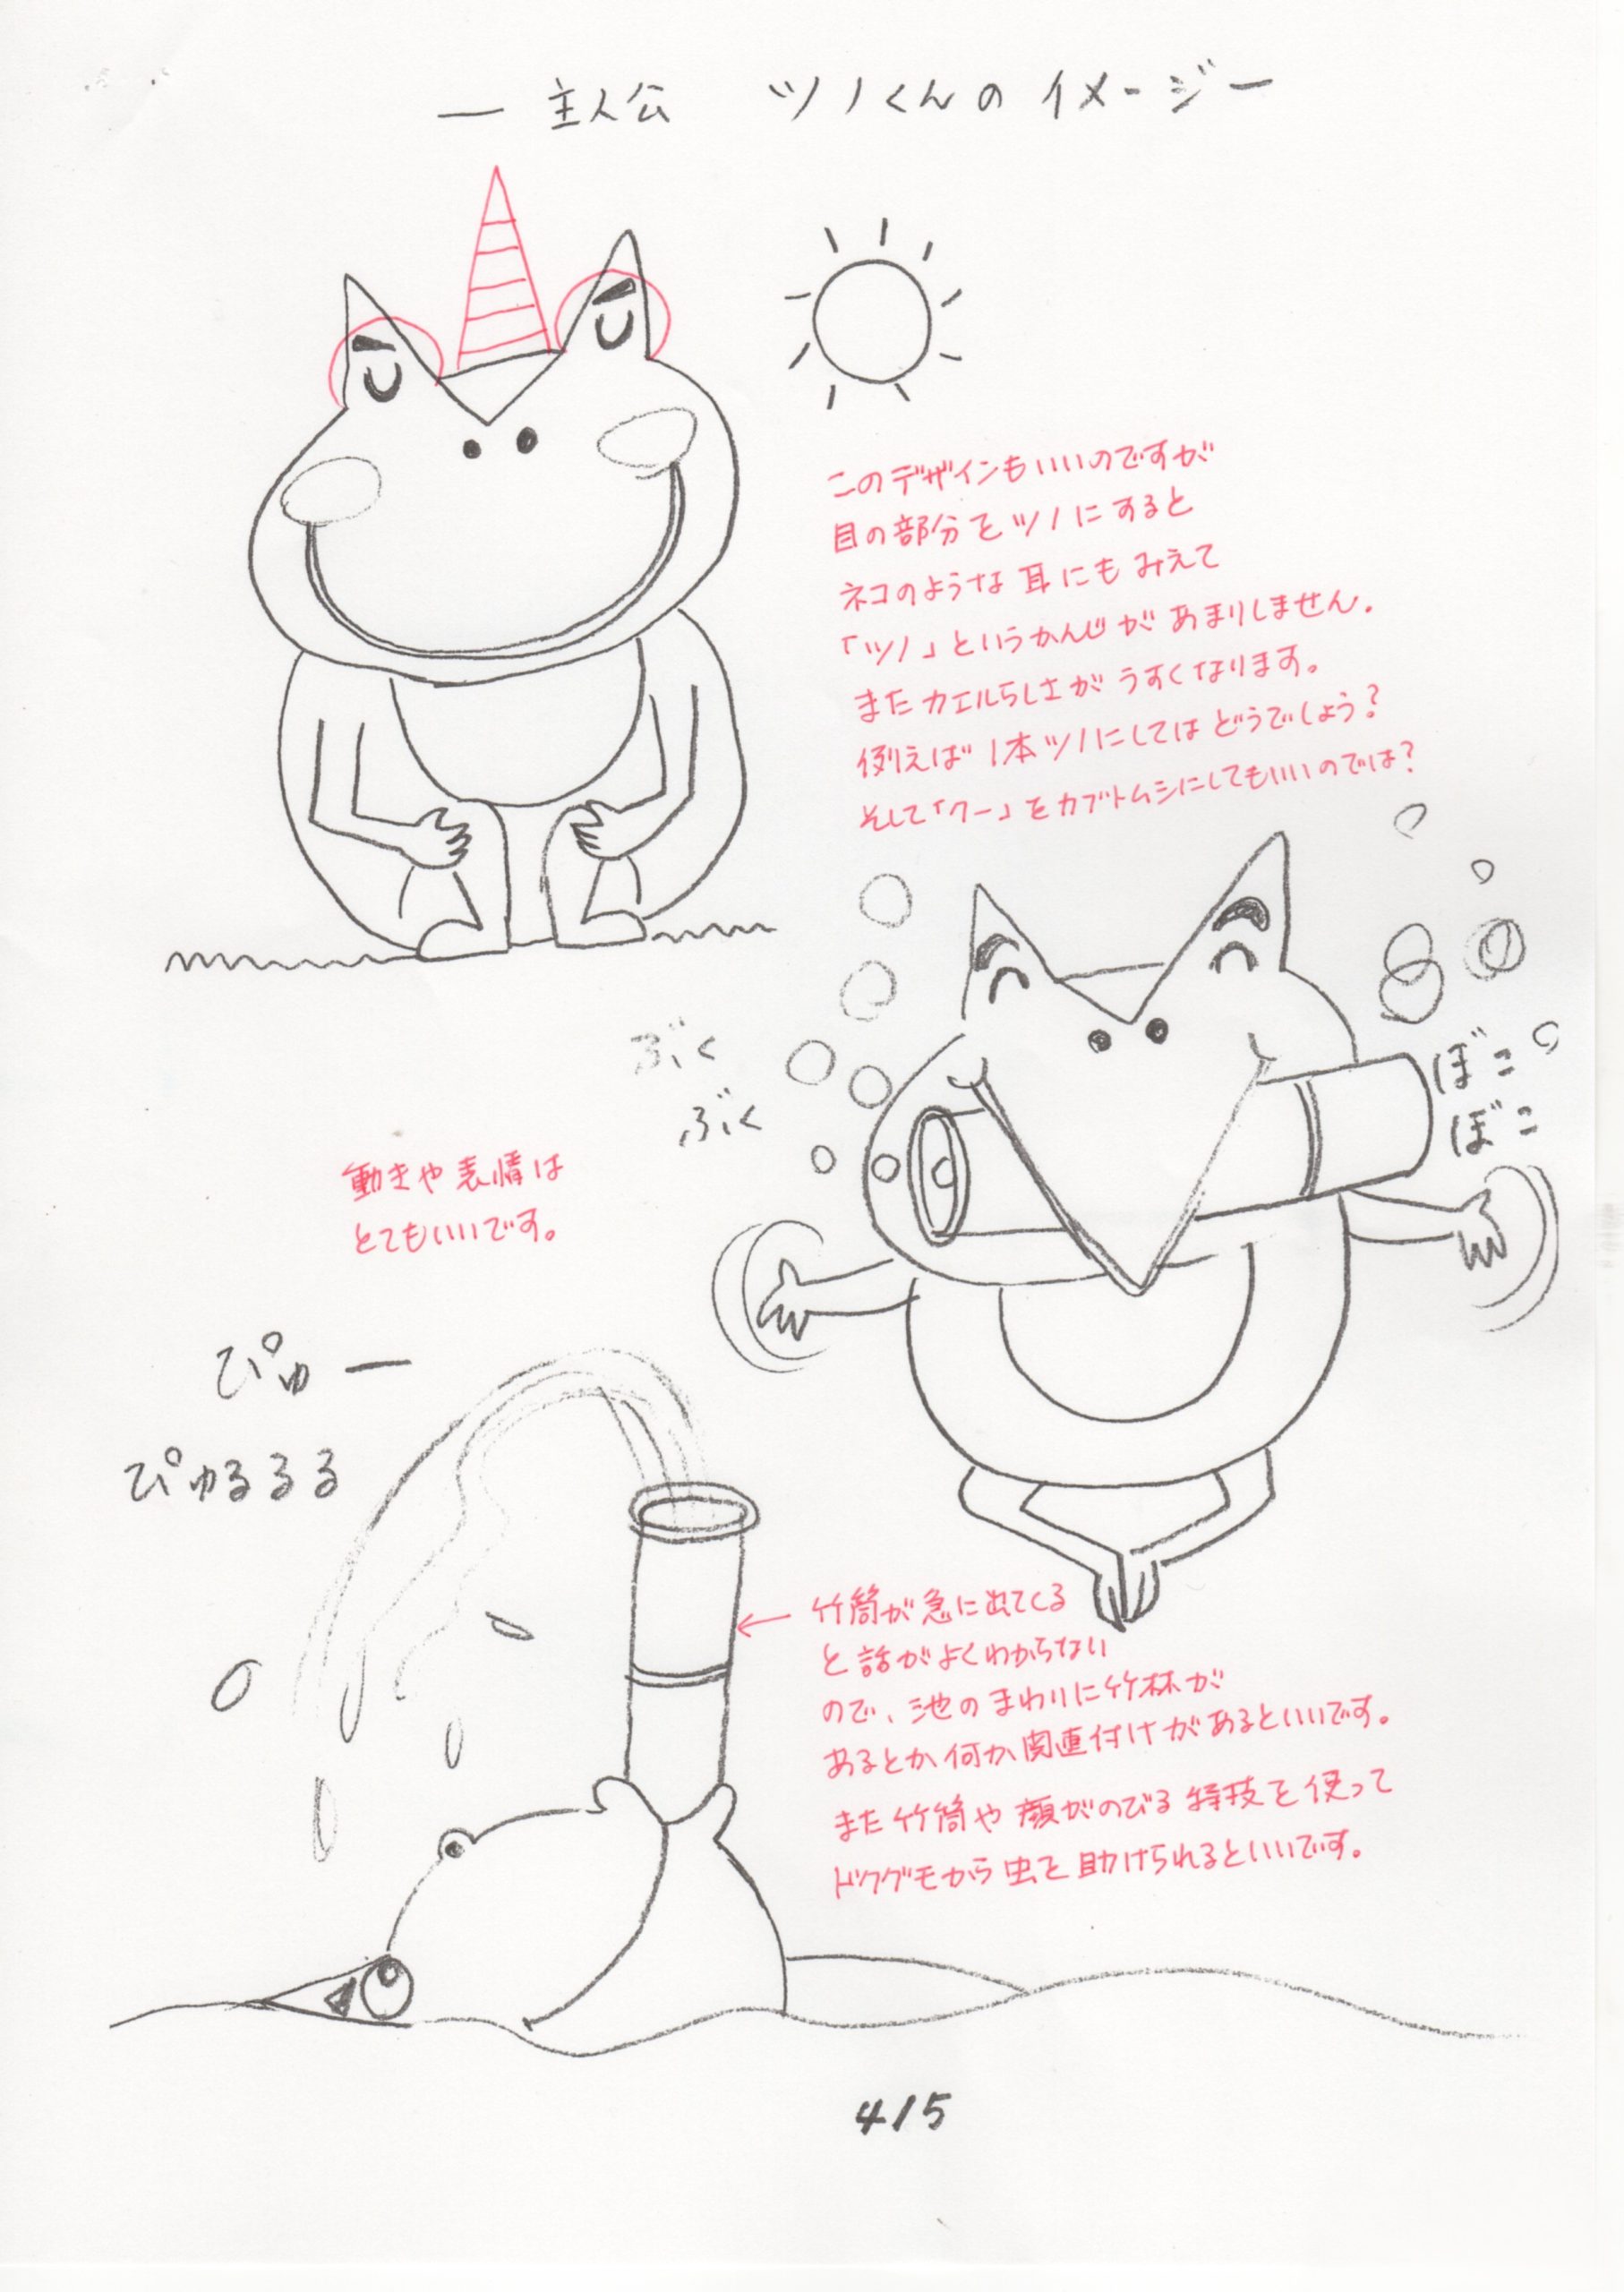 ― 主人公 ツノくんのイメージ ―
このデザインもいいのですが
目の部分をツノにすると
ネコのような耳にもみえて
「ツノ」というかんじがあまりしません.
またカエルらしさがうすくなります。
例えば1本ツノにしてはどうでしょう?
そして「クー」をカブトムシにしてもいいのでは?
ぶく
ぶく
ぼこ
ぼこ
動きや表情は
とてもいいです。
ぴゅー
ぴゅるるる
竹筒が急に出てくる
と話がよくわからない
ので、池のまわりに竹林が
あるとか何か関連付けがあるといいです。
また竹筒や顔がのびる特技を使って
ドクグモから虫を助けられるといいです。
4/5